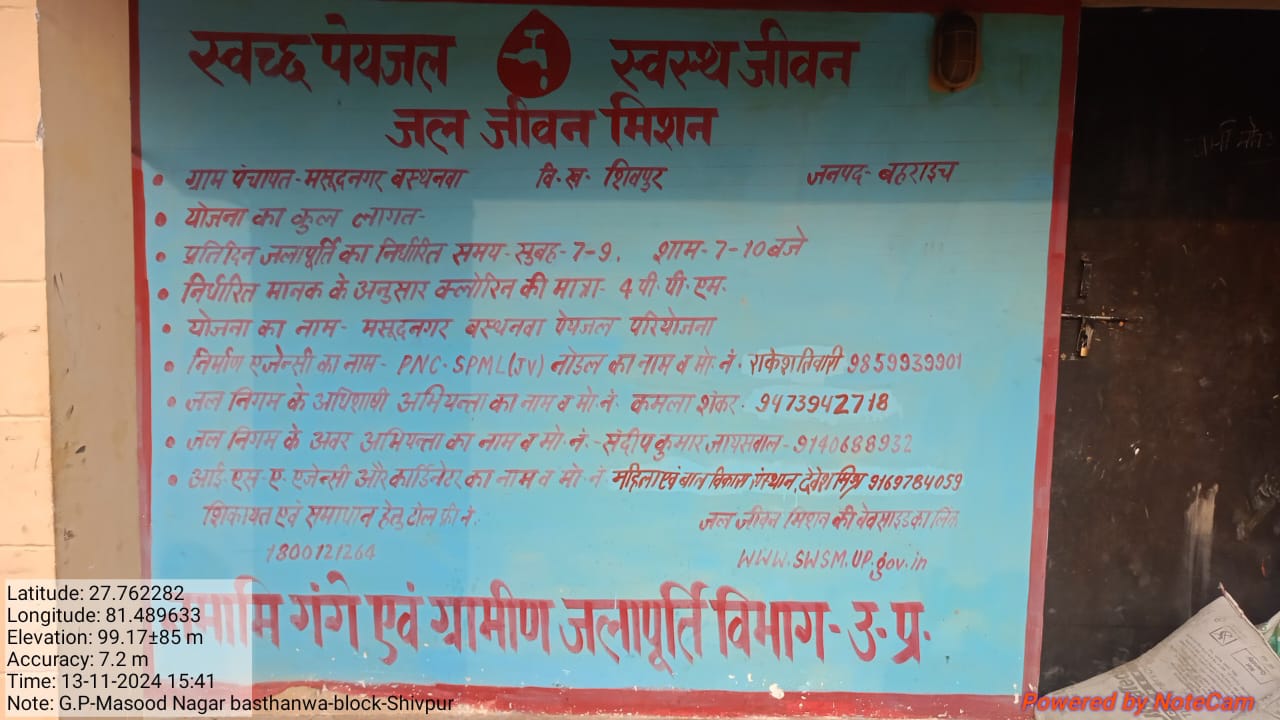 स्वच्छ पेयजल स्वस्थ जीवन
जल जीवन मिशन
• ग्राम पंचापत-मसूदनगर बस्थनवा वि.ख. शिवपुर जनपद- बहराइच
• योजना का कुल लागत-
• प्रतिदिन जलापूर्ति का निर्धारित समय-सुबह-7-9, शाम-7-10 बजे
• निर्धारित मानक के अनुसार क्लोरिन की मात्रा- 4 पी.पी.एम.
• योजना का नाम- मसूदनगर बस्थनवा पेयजल परियोजना
• निर्माण एजेन्सी का नाम- PNC-SPML(JV) नोडल का नाम व मो.नं. राकेश तिवारी 9859939901
• जल निगम के अधिशाषी अभियन्ता का नाम व मो.नं. कमला शंकर. 9473942718
• जल निगम के अवर अभियन्ता का नाम व मो.नं.-संदीप कुमार जायसवाल-9140688932
• आई.एस-ए-एजेन्सी और कार्डिनेटर का नाम व मो.नं. महिला एवं बाल विकास संस्थान, देवेश मिश्र 9169784059
शिकायत एवं समाधान हेतु टोल फ्री नं. जल जीवन मिशन की वेवसाइड का लिंक
1800121264 WWW.SWSM.UP.gov.in
मामि गंगे एवं ग्रामीण जलापूर्ति विभाग-उ-प्र.
Latitude: 27.762282
Longitude: 81.489633
Elevation: 99.17±85 m
Accuracy: 7.2 m
Time: 13-11-2024 15:41
Note: G.P-Masood Nagar basthanwa-block-Shivpur
Powered by NoteCam